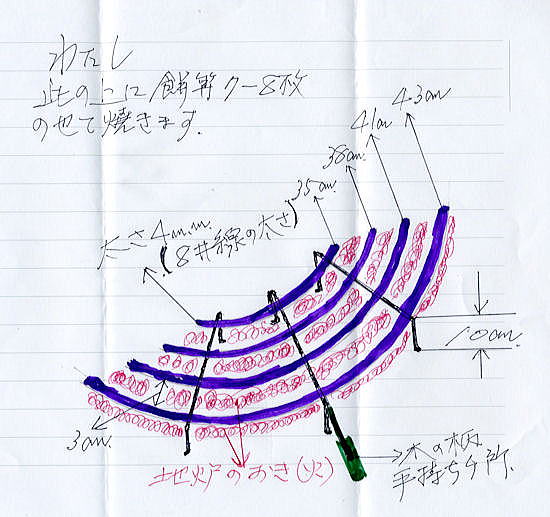 わたし
此の上に餅等7〜8枚
のせて焼きます.
43cm
41cm
38cm.
35cm.
太さ4m.m.
(8#線の太さ)
10cm.
3cm.
地炉のおき(火)
木の柄
手持ち所.